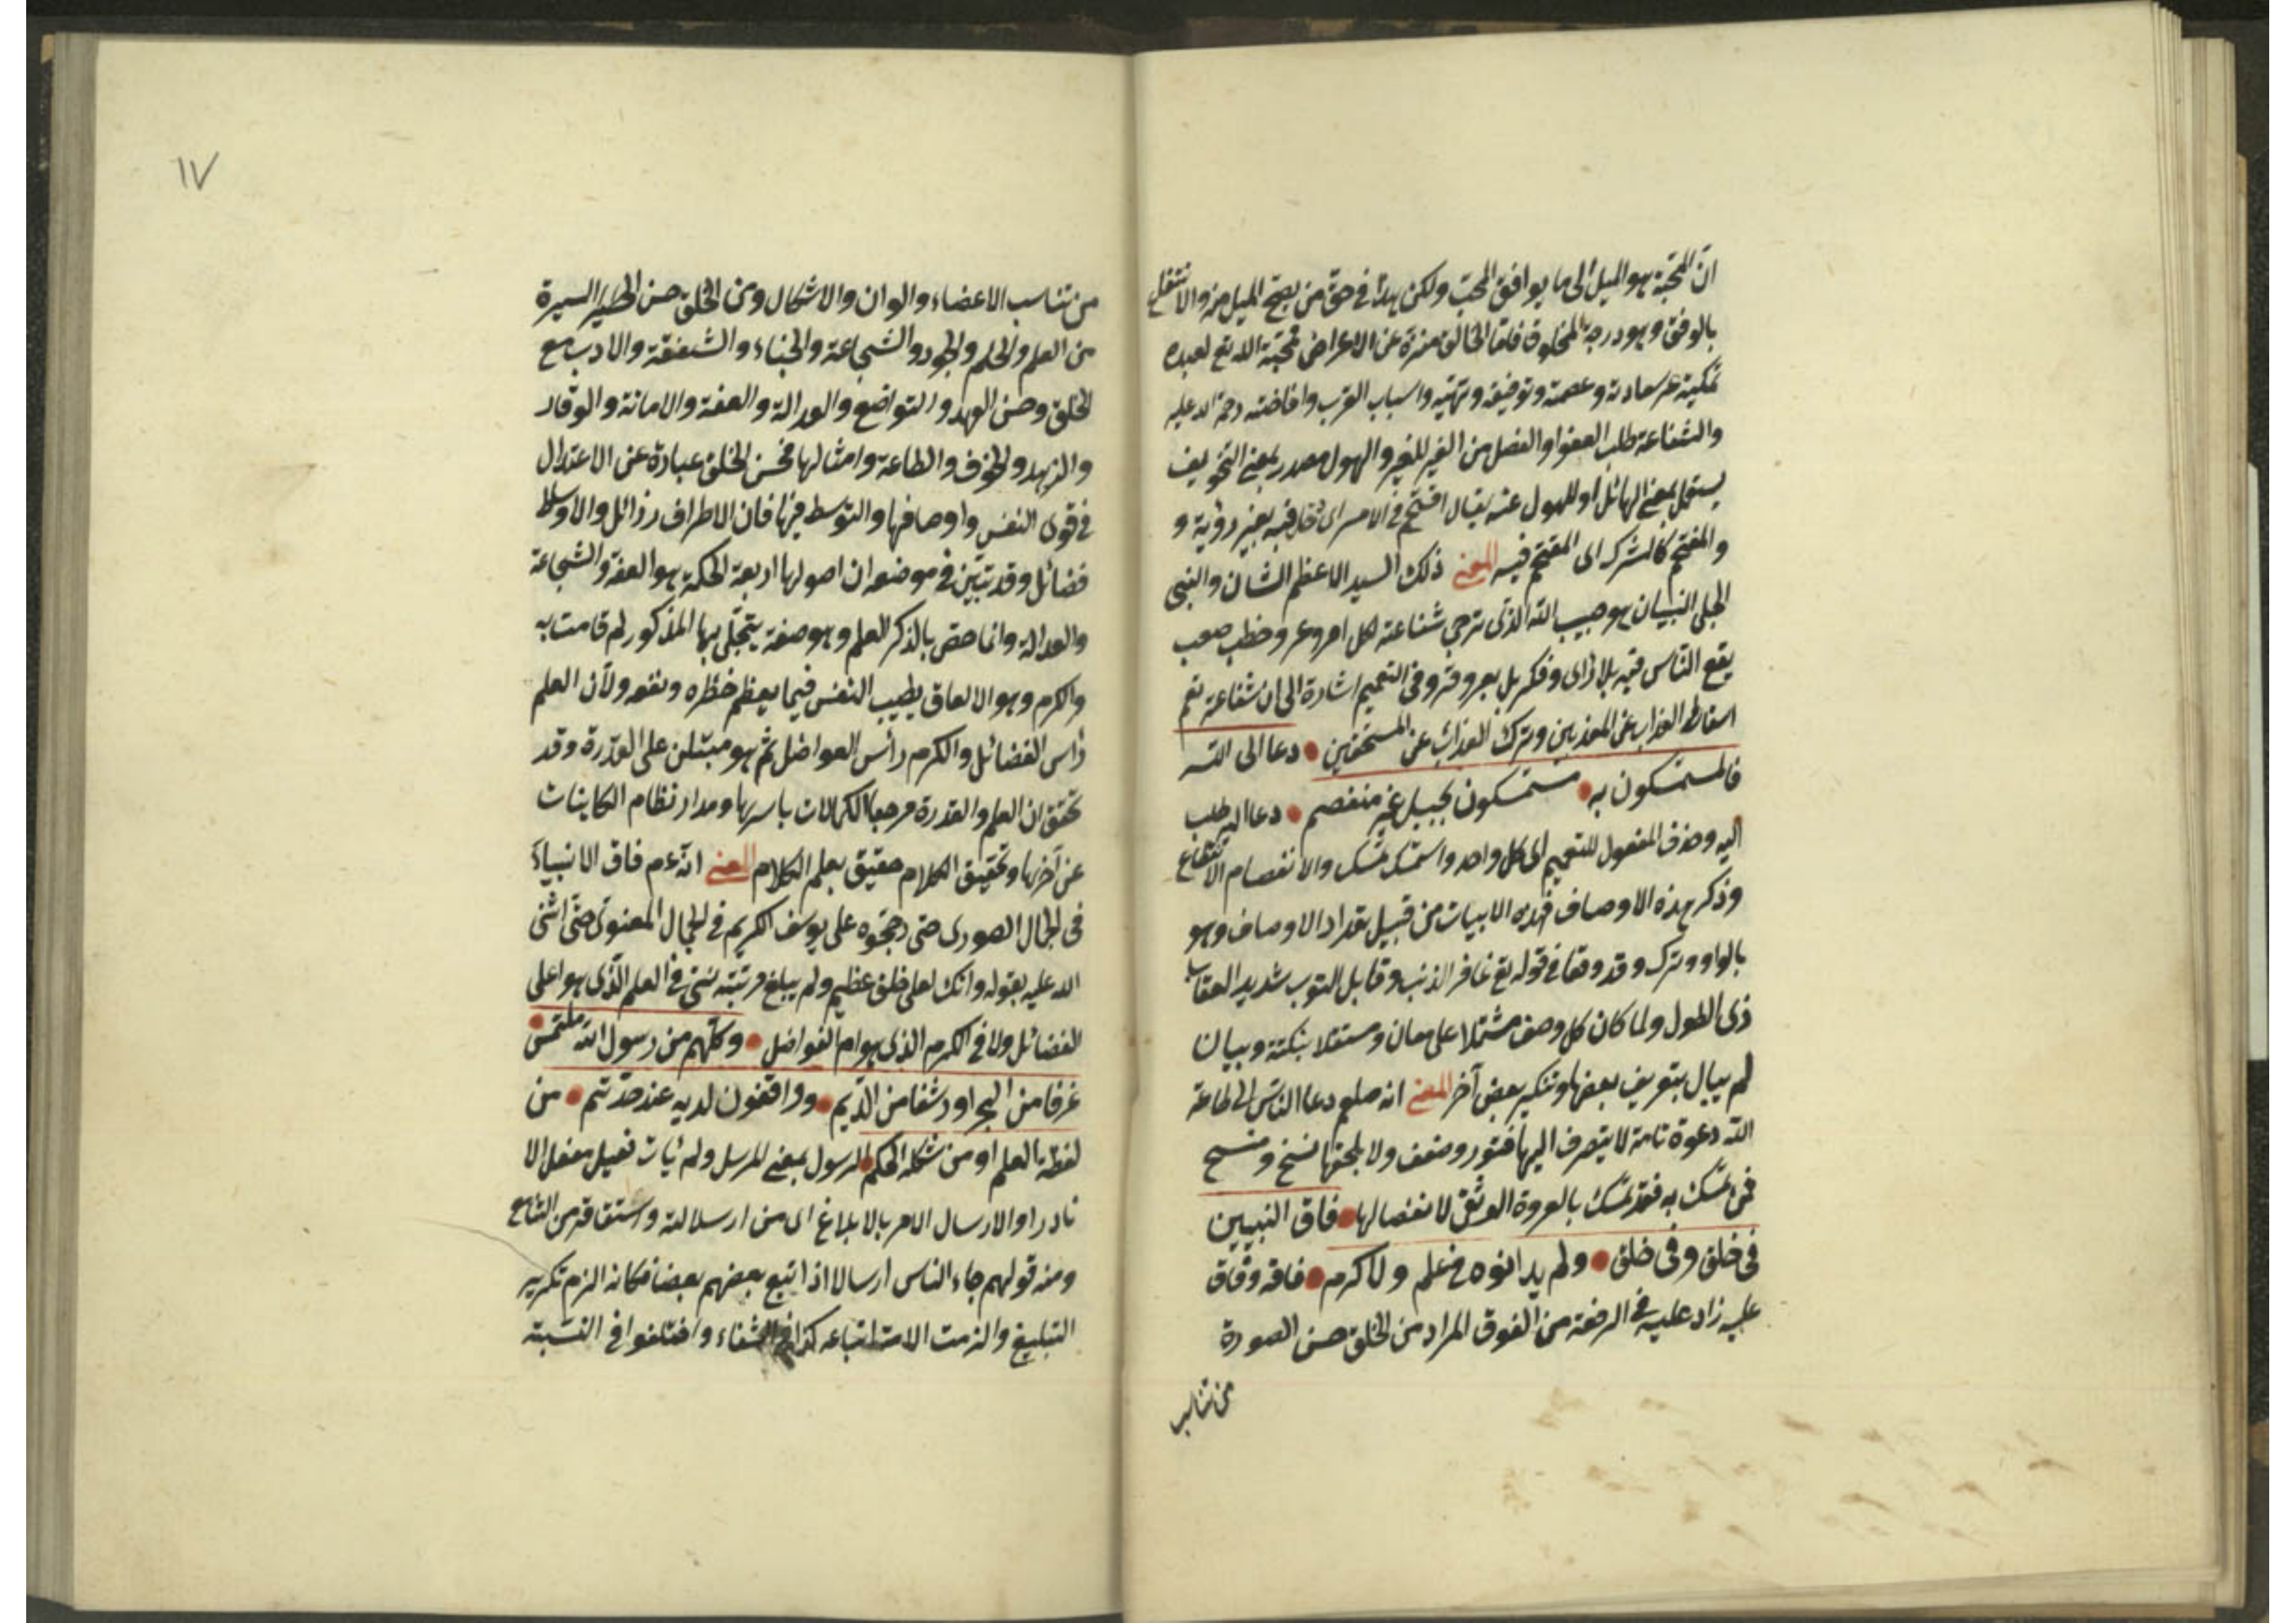 انّ المحبّة هو الميل الى ما يوافق المحبّ ولكن هذا في حقّ من يصحّ الميل منه والانتفاع
بالوفق وهو درجة المخلوق فاما الخالق منزه عن الاعراض فمحبّة الله تع لعبده
تمكينه عن سعادته وعصمته وتوفيقه وتهيئه واسباب القرب وافاضته رحمة الله عليه
والشفاعة طلب العفو او الفضل من الغير للغير والهول مصدر بمعنى التخويف
يستعمل بمعنى الهائل او للهول عنه يقال اقتحم في الامر اى دخل فيه بغير رؤية و
والمقتحم كالمشترك اى المقتحم فيه المعنى ذلك السيد الاعظم الشان والنبى
الجلى البيان هو حبيب الله الذى ترجى شفاعته لكل امر وعر وخطب صعب
يقع الناس فيه بلا راى وفكر بل وفى التعميم اشارة الى ان شفاعته تعم
اسقاط العذاب عن المعذبين وترك العذاب عن المستحقين دعا الى الله
فالمستمسكون به مستمسكون بحبل غير منفصم دعا اليه طلب
اليه وحذف المفعول للتعميم اى كل واحد واستمسك تمسك والانفصام الانقطاع
وذكر هذه الاوصاف فهذه الابيات من قبيل تعداد الاوصاف وهو
بالواو وترك وقد وقعا في قوله تع غافر الذنب وقابل التوب شديد العقاب
ذى الطول ولما كان كل وصف مشتملا على معان ومستقلا بنكتة وبيان
لم يبال بتعريف بعضها وتنكير بعض آخر المعنى انه صلعم دعا الناس الى طاعة
الله دعوة تامة لا يتصرف اليها فتور وضعف ولا يلحقها نسخ ومسخ
فمن تمسك به فقد تمسك بالعروة الوثقى لا انفصال لها فاق النبيين
فى خلق وفى خلق ولم يدانوه في علم ولا كرم فاقه وفاق
عليه زاد عليه في الرفعة من الفوق المراد من الخلق حسن الصورة
من تناسب
١٧
من تناسب الاعضاء والوان والاشكال ومن الخلق حسن السيرة
من العلم والحلم والجود والشجاعة والحياء والشفقة والادب مع
الخلق وحسن العهد والتواضع والعدالة والعفة والامانة والوقار
والزهد والخوف والطاعة وامثالها فحسن الخلق عبارة عن الاعتدال
في قوى النفس واوصافها والتوسط فيها فان الاطراف رذائل والاوساط
فضائل وقد تبيّن في موضعه ان اصولها اربعة الحكمة هو العفة والشجاعة
والعدالة وانما خص بالذكر العلم وهو صفة يتجلّى بها المذكور لم قامت به
والكرم وهو الانفاق بطيب النفس فيما يعظم خطره ونفعه ولان العلم
رأس الفضائل والكرم رأس الفواضل ثم هو مبتنى على القدرة وقد
تحقق ان العلم والقدرة مرجعا الكمالات باسرها ومدار نظام الكاينات
عن آخرها وتحقيق الكلام حقيق بعلم الكلام المعنى انه عم فاق الانبياء
فى الجمال الصورى حتى رجحوه على يوسف الكريم في الجمال المعنوى حتى اثنى
الله عليه بقوله وانك لعلى خلق عظيم ولم يبلغ مرتبته نبى في العلم الذى هو اعلى
الفضائل ولا في الكرم الذى هو ام الفواضل وكلهم من رسول الله ملتمس
غرفا من البحر او رشفا من الديم وواقفون لديه عند حدّهم من
نقطة العلم او من شكلة الحكم الرسول بمعنى المرسل ولم يأت فعيل مفعل الا
نادرا والارسال الامر بالابلاغ الى من ارسل اليه واشتقاقه من التتابع
ومنه قولهم جاء الناس ارسالا اذا اتبع بعضهم بعضا فكانه الزم تكرير
التبليغ والزمت الامة اتباعه كذا في الشفاء واختلفوا في النسبة